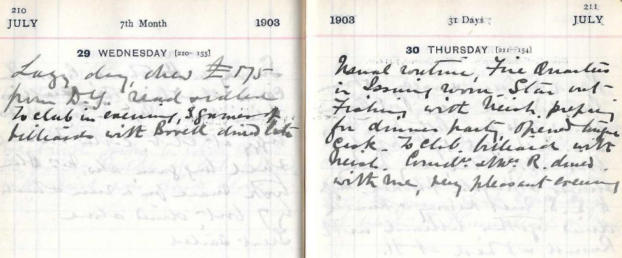 210
JULY 7th Month 1903
29 WEDNESDAY [210-155]
Lazy day, drew £175
from D.Y. read &
to club in evening, 3 games of
billiards with Bovell dined late
1903 31 Days JULY
211
30 THURSDAY [211-154]
Usual routine, Fire Quarters
in Issuing room. Star out
Fishing with Neish, preparing
for dinner party. Opened
Cask. To club, billiards with
Neish. & Mrs. R. dined
with me, very pleasant evening